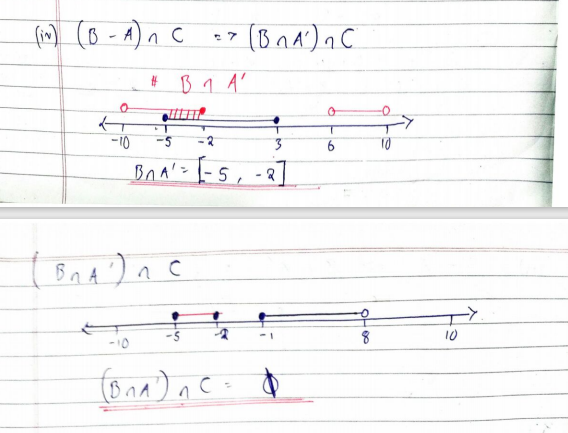 (iv) (B - A) ∩ C => (B ∩ A') ∩ C
# B ∩ A'
-10 -5 -2 3 6 10
B∩A' = [-5, -2]
(B∩A') ∩ C
-10 -5 -2 -1 8 10
(B∩A') ∩ C = ϕ